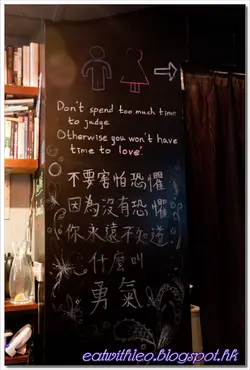 Don't spend too much time
to judge
Otherwise you won't have
time to love.
不要害怕恐懼
因為沒有恐懼
你永遠不知道
什麼叫
勇氣
eatwithleo.blogspot.hk